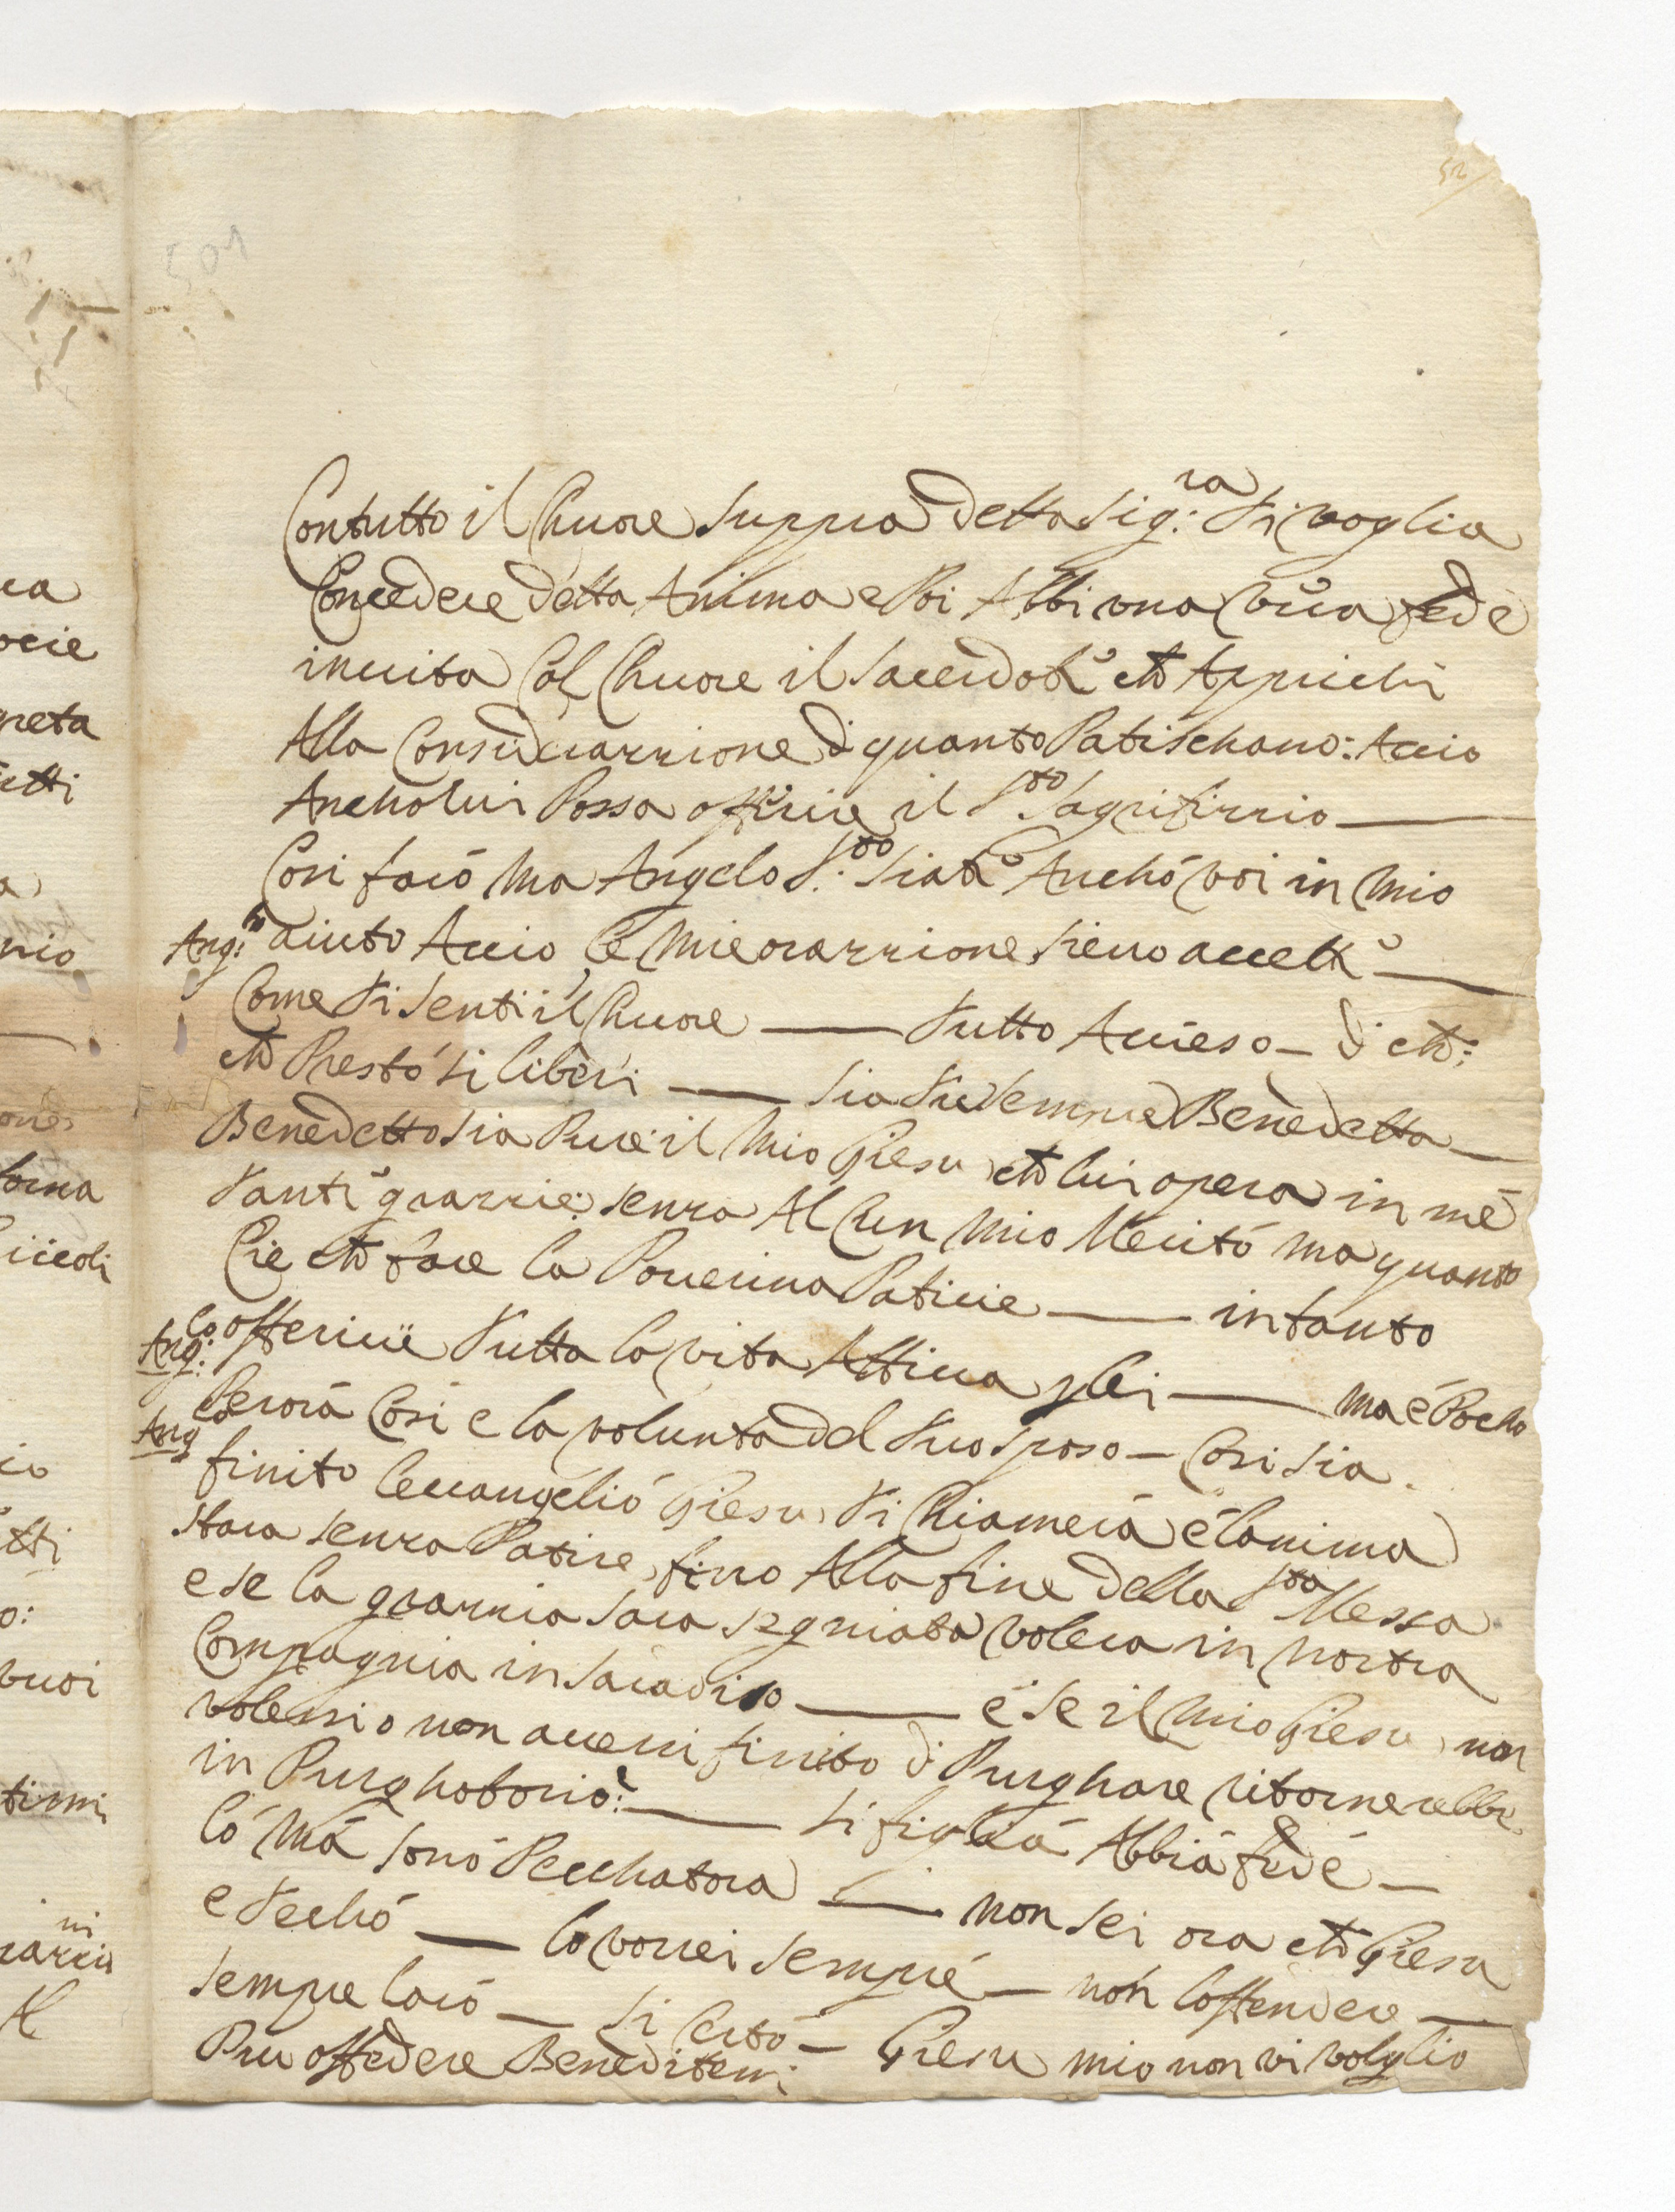 52
501
Contutto il Chuore Suppra Detta Sig:ra Ti voglia
Concedere detta Anima e Poi Abbi una viva fede
inuita Col Chuore il Sacerdote che Apprichi
Alla Considerarrione di quanto Patischano: Accio
Ancholui Possa offirire il S.to Sagrifirrio —
Cosi farò ma Angelo S.to Siate Anchó voi in mio
Ang:lo aiuto Accio le Mie orarrione Sieno accette —
Come ti Senti il Chuore — Tutto Accieso — di che:
che Prestó Si liberi — Sia Tu Sempre Benedetta —
Benedetto Sia Pure il Mio Giesu che lui opera in mé
Tanti grarrie: Senra Al Cun Mio Meritó ma quanto
Cie che fare la Pouerina Patiue — intanto
Ang:lo offerirre Tutta la vita Attiua p lei — ma é Pocho
Ang lo Perorá Cosi e la voluntà del Tuo Sposo — Cosi Sia.
finito leuangelió Giesu Ti Chiamerá é lanima
Stara Senra Patire, fino Alla fine della S.ta Messa
e se la grarria Sara Segniata volera in nostra
Compagnia in Paradiso — é Se il Mio Giesu non
volessi o non auessi finito di Purghare ritornerebbe
in Purghotorio? — Si figliá Abbiá fede —
ló Má Sonó Pecchatora — non Sei ora che Giesu
e Techó — lo vorrei Sempré — nón loffendere —
Sempre laró — Si Certó — Giesu mio non vi volglio
Piu offedere Beneditemi